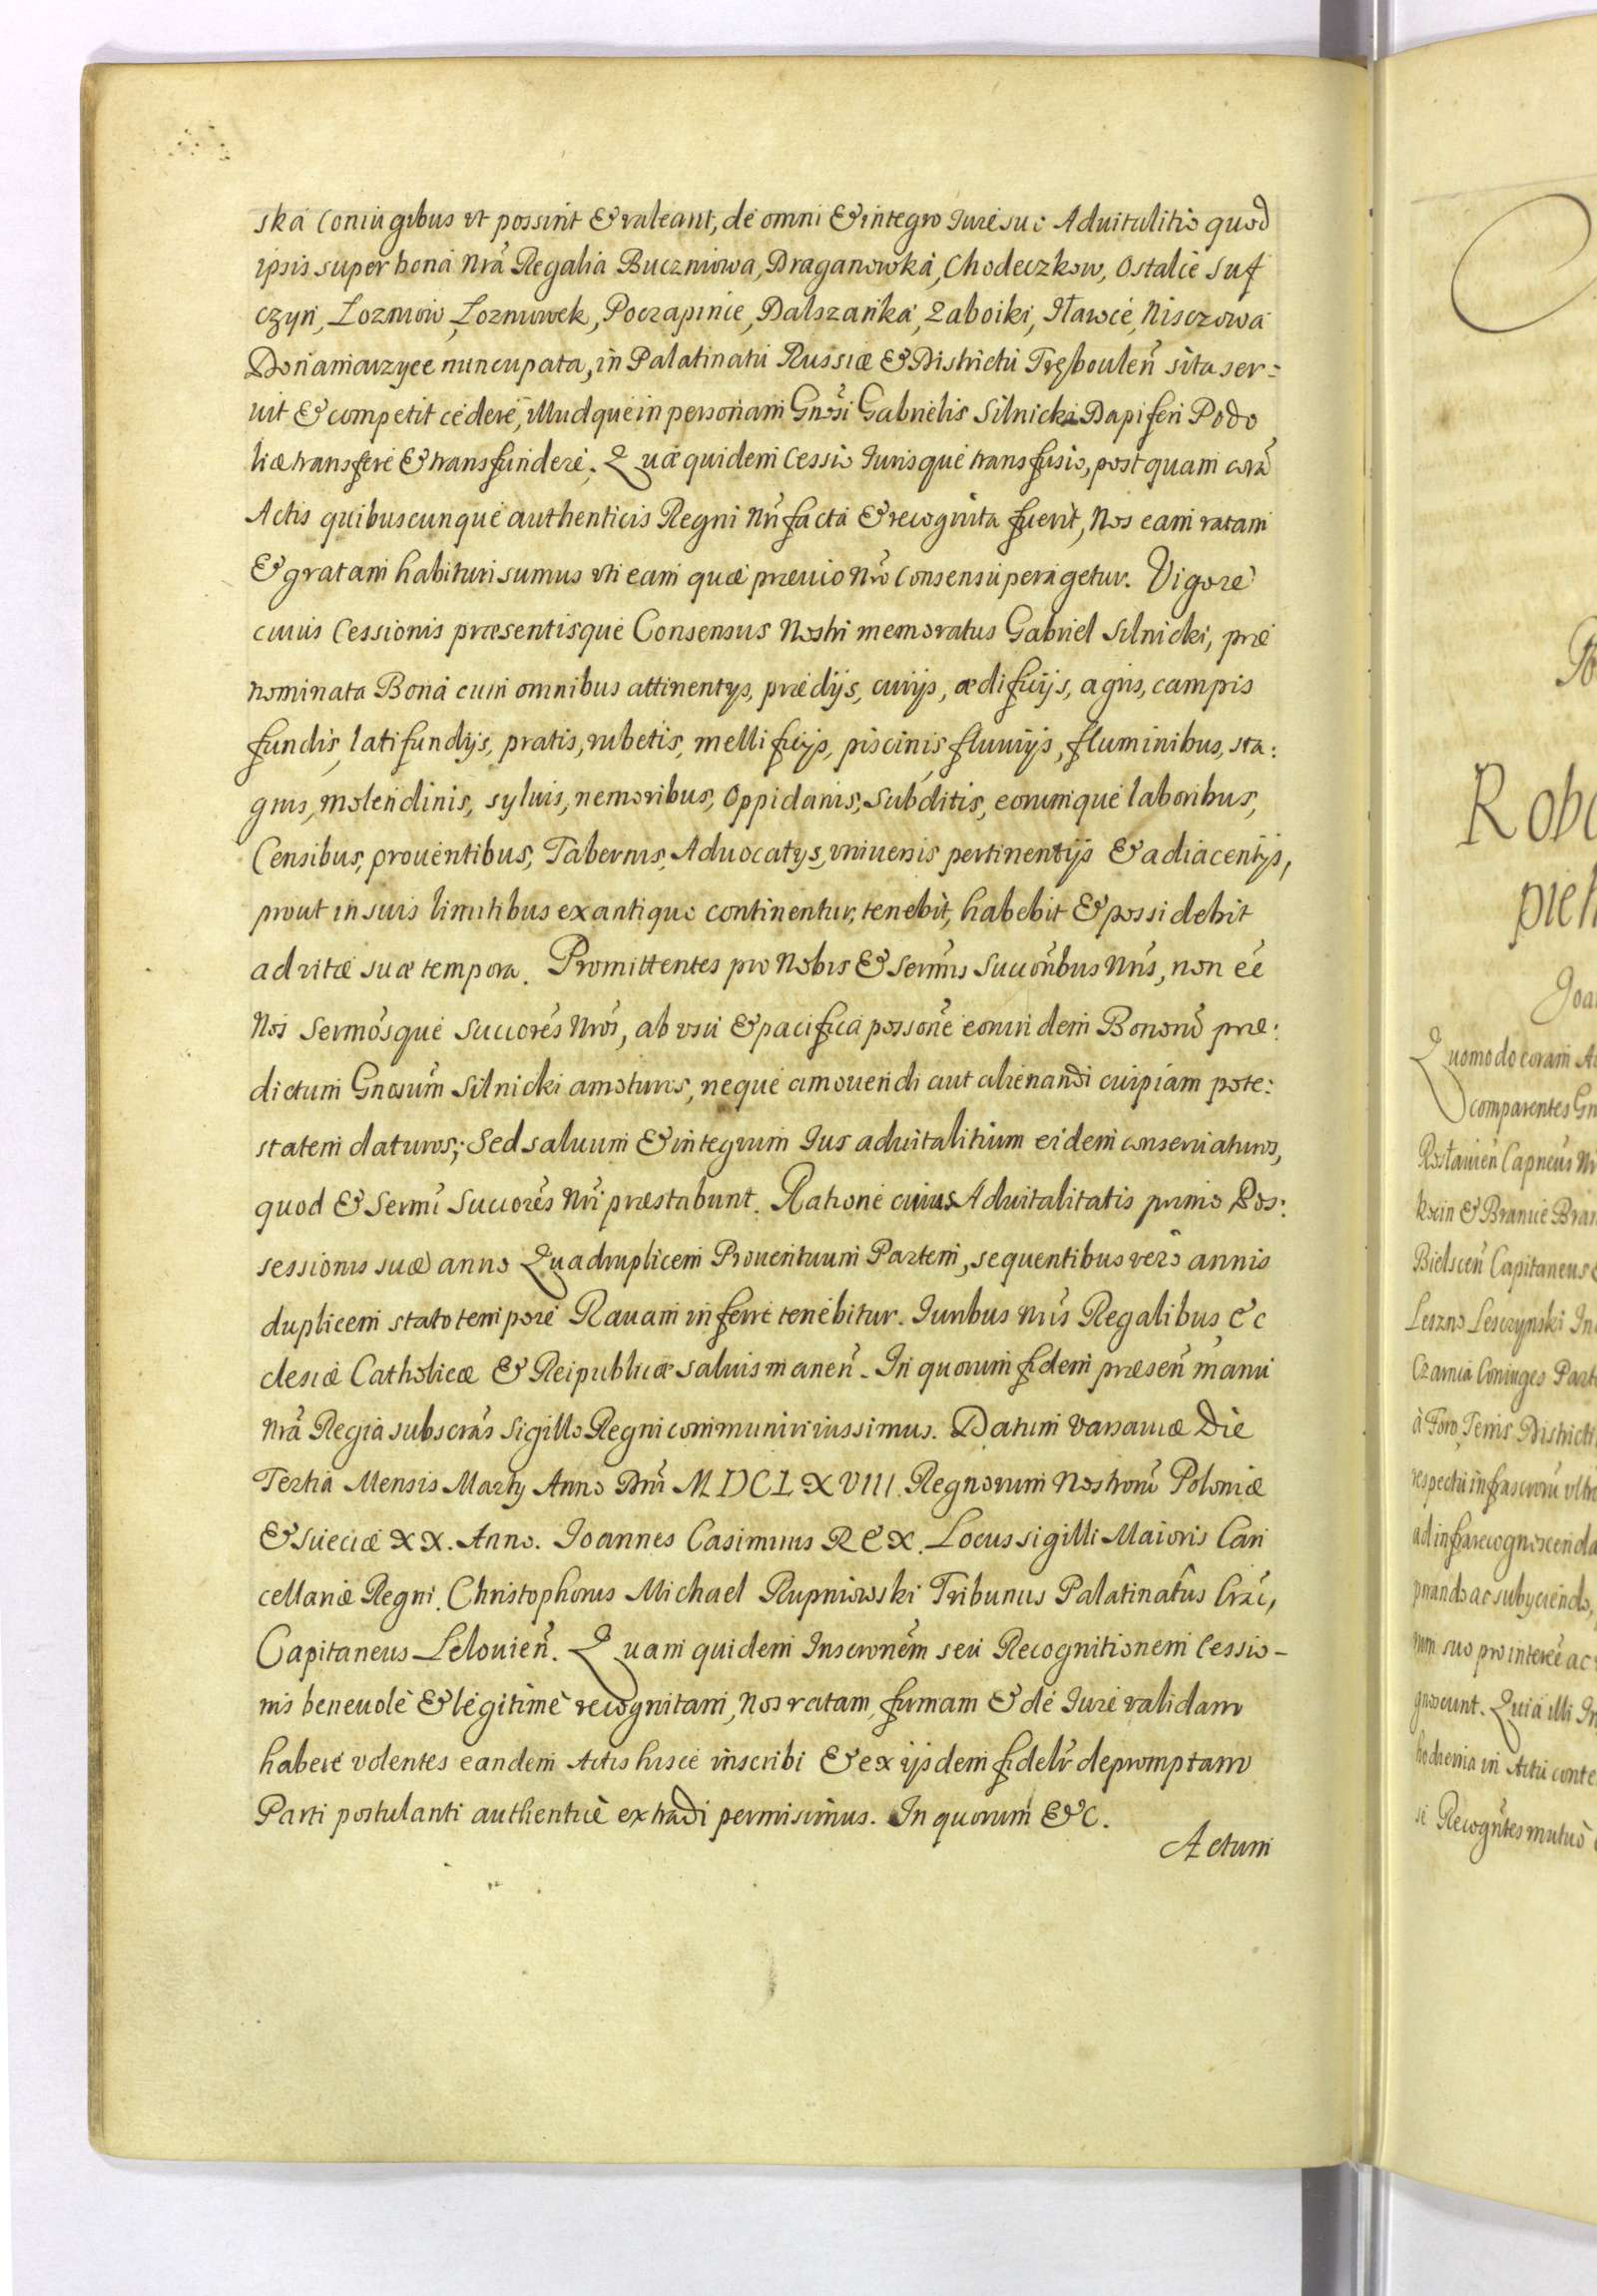 ska Coniugibus vt possint & valeant, de omni & integro Iure suo Aduitalitio quod
ipsis super bona Nrã Regalia Buczniowa, Draganowka, Chodeczkow, Ostalce Suſ
czyn, Lozniow, Lozniowek, Poczapince, Dalszanka, Zaboiki, Iławce, Nisczowa
Donamauzyce nuncupata, in Palatinatu Russiæ & Districtu Tręboulen̄ sita ser:
uit & competit cedere, illudque in personam Gnosi Gabrielis Silnicki Dapiferi Podo
liæ transfere & transfundere. Quæ quidem Cessio Iurisque transfusio, postquam corã
Actis quibuscunque authenticis Regni Nri facta & recognita fuerit, Nos eam ratam
& gratam habituri sumus vti eam quæ præuio Nro Consensu peragetur. Vigore
cuius Cessionis præsentisque Consensus Nostri memoratus Gabriel Silnicki, præ
nominata Bona cum omnibus attinentys, prædijs, curijs, ædificijs, agris, campis
fundis, latifundijs, pratis, rubetis, mellificijs, piscinis, fluuijs, fluminibus, sta:
gnis, molendinis, syluis, nemoribus, Oppidanis, Subditis, eorumque laboribus,
Censibus, prouentibus, Tabernis, Aduocatys, vniuersis pertinentijs & adiacentijs,
prout in suis limitibus ex antiquo continentur, tenebit, habebit & possidebit
ad vitæ suæ tempora. Promittentes pro Nobis & Sermis Succoribus Nris, non ee
Nos Sermosque Succores Nros, ab vsu & pacifica possone eorundem Bonorũ præ:
dictum Gnosum Silnicki amoturos, neque amouendi aut alienandi cuipiam pote:
statem daturos; Sed saluum & integrum Ius aduitalitium eidem conseruaturos,
quod & Sermi Succores Nri præstabunt. Ratione cuius Aduitalitatis primo Pos:
sessionis suæ anno Quadruplicem Prouentuum Partem, sequentibus vero annis
duplicem stato tempore Rauam inferre tenebitur. Iuribus Nris Regalibus Ec
clesiæ Catholicæ & Reipublicæ saluis manen̄. In quorum fidem præsen̄ manu
Nrã Regia subscrãs Sigillo Regni communiri iussimus. Datum Varsauiæ Die
Tertia Mensis Marty Anno Dni MDCLXVIII. Regnorum Nostrorũ Poloniæ
& Sueciæ XX. Anno. Ioannes Casimirus REX. Locus sigilli Maioris Can
cellariæ Regni. Christophorus Michael Rupniowski Tribunus Palatinatus Crac,
Capitaneus Lelouien̄. Quam quidem Inscronem seu Recognitionem Cessio-
nis beneuole & legitime recognitam, Nos ratam, firmam & de Iure validam
habere volentes eandem Actis hisce inscribi & ex ijsdem fidelr depromptam
Parti postulanti authentice extradi permisimus. In quorum &c.
Actum